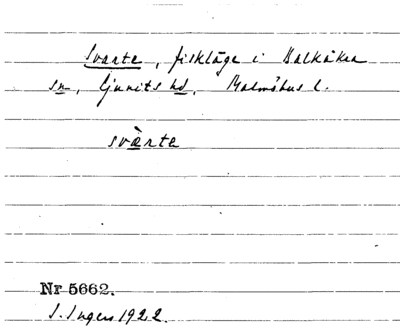 Svarte, fiskläge i Balkåkra
sn, Ljunits hd, Malmöhus l.
svàrte
Nr 5662.
I. Ingers 1922.